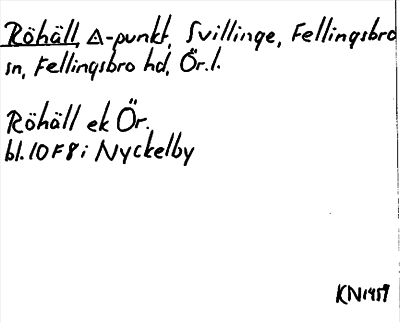 Röhäll, △-punkt, Svillinge, Fellingsbro
sn, Fellingsbro hd, Ör.l.
Röhäll ek Ör.
bl. 10F8i Nyckelby
KN1959